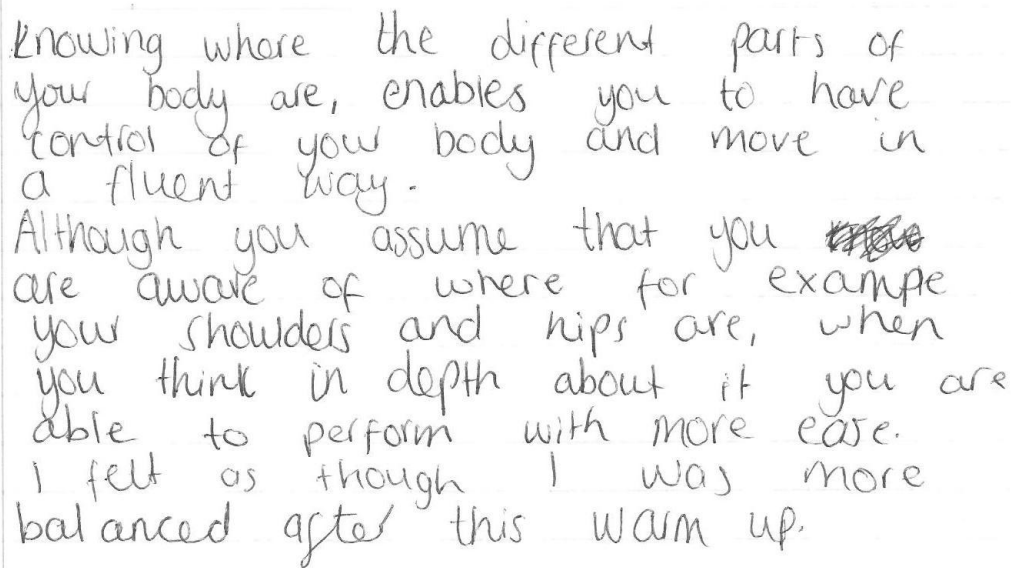 Knowing where the different parts of
your body are, enables you to have
control of your body and move in
a fluent way.
Although you assume that you
are aware of where for example
your shoulders and hips are, when
you think in depth about it you are
able to perform with more ease.
I felt as though I was more
balanced after this warm up.